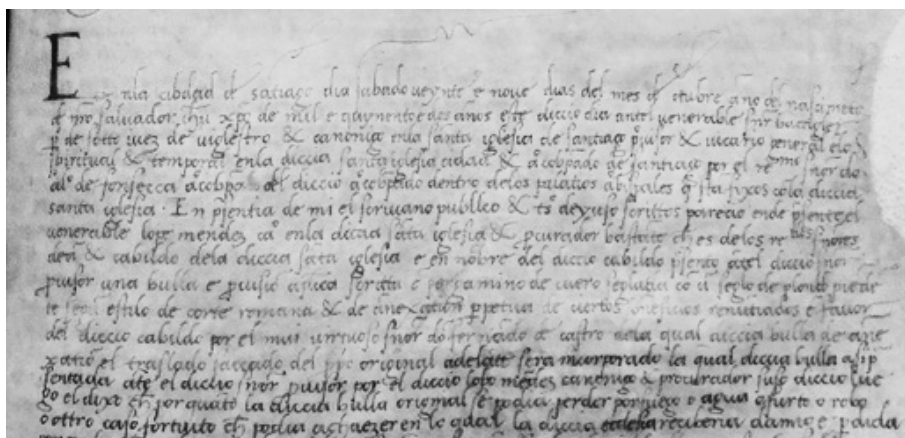 En la cibdad de santiago dia sabado veynte e noue dias del mes de otubre año del nasçimeto
de nro saluador ihu xpo de mil e quynentos e dos años este diccio dia antel venerable snor bachiller
de sotto iuez de viglestro & canonigo en la santa iglesia de santiago puisor & vicario general elo
spiritual & temporal en la diccia santa iglesia cidad & arcobpado de santiago por el re snor do
alo de fonsecca arcobpo del diccio arcobpado dentro delos palatios q sta fixos cola diccia
santa iglesia. En psentia de mi el scriuano publico & ts de yuso scrittos parecio ende psente el
venerable lope mendez en la diccia sata iglesia & pcurador bastate q es delos re snores
dea & cabildo dela diccia sata iglesia e en nobre del diccio cabildo pseto atel diccio snor
puisor una bulla e puisio scritta e pargamino de cuero co u seglo de plomo
segu estilo de corte romana & de anexation ppetua de ciertos beneficios renutiados e fauor
del diccio cabildo por el mui virtuoso snor do fernado de castro dela qual diccia bulla de ane
xatio el traslado saccado del ppio original adelate sera incorporado la qual diccia bulla asi p
sentada ate el diccio snor puisor por el diccio lope medez canonigo & procurador suso diccio lue
go el dixo q por quato la diccia bulla original se podia perder por fuego o agua o furto o robo
o ottro caso fortuito q podia achaezer en lo qual la diccia ecclesia reciberia damno e